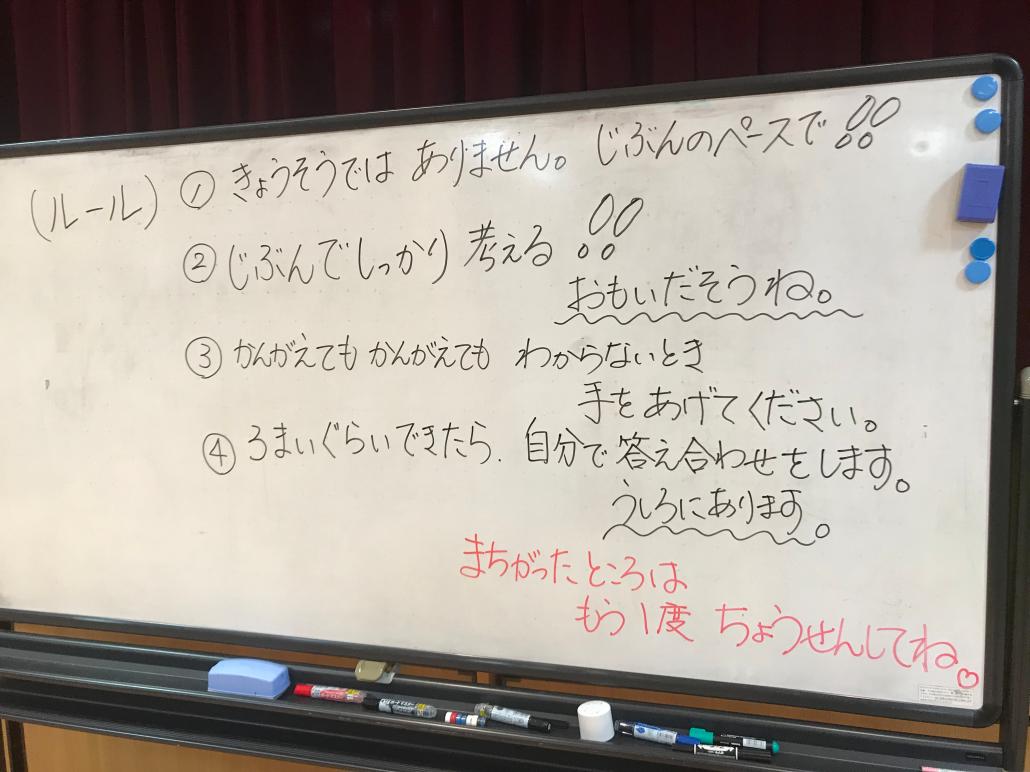 (ルール) ① きょうそうでは ありません。 じぶんのペースで!!
② じぶんでしっかり 考える!!
おもいだそうね。
③ かんがえても かんがえても わからないとき
手をあげてください。
④ ろまいぐらいできたら. 自分で答え合わせをします。
うしろにあります。
まちがったところは
もう1度 ちょうせんしてね。♡